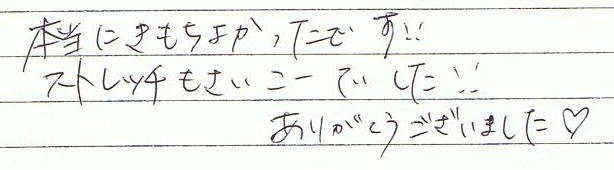 本当にきもちよかったです!!
ストレッチもさいこーでした!!
ありがとうございました♡